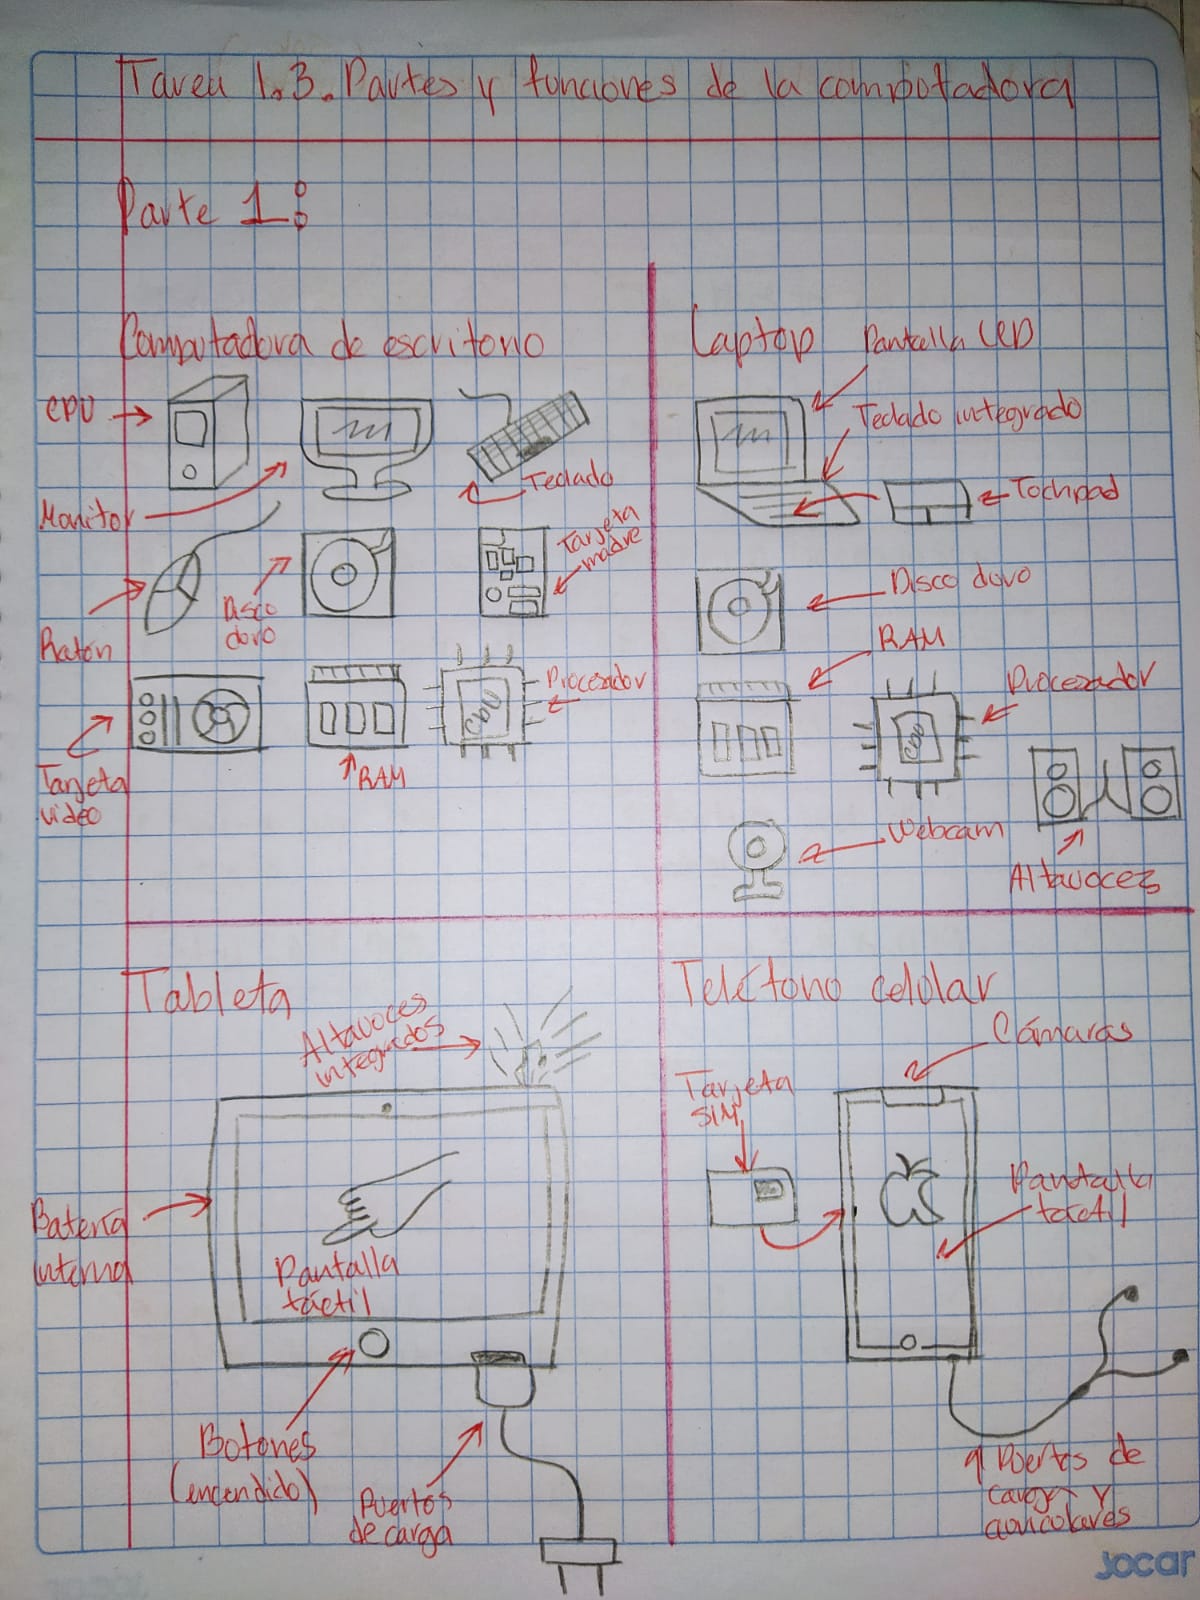 Tarea 1.3. Partes y funciones de la computadora
Parte 1:
Computadora de escritorio
CPU
Monitor
Teclado
Ratón
Disco
duro
Tarjeta
madre
Tarjeta
video
RAM
Procesador
Laptop
Pantalla LED
Teclado integrado
Tochpad
Disco duro
RAM
Procesador
Webcam
Altavoces
Tableta
Altavoces
integrados
Batería
interna
Pantalla
táctil
Botones
(encendido)
Puertos
de carga
Teléfono celular
Cámaras
Tarjeta
SIM
Pantalla
táctil
Puertos de
carga y
auriculares
jocar